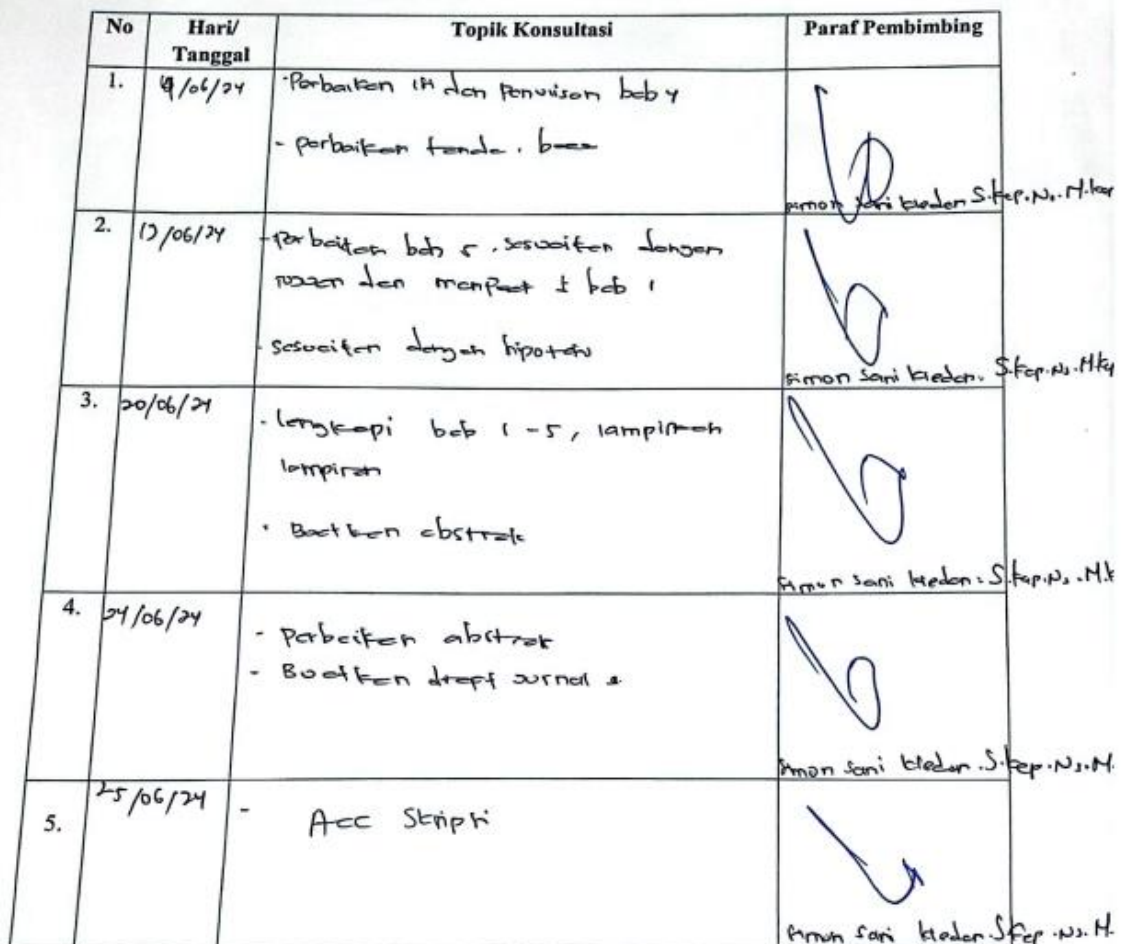 No Hari/ Tanggal Topik Konsultasi Paraf Pembimbing
1. 4/06/24 - Perbaikan isi dan penulisan bab 4
- perbaikan tanda baca
Simon Sani Kleden S.Kep.Ns.M.Kep
2. 13/06/24 - Perbaikan bab 5. sesuaikan dengan
tujuan dan manfaat bab 1
- Sesuaikan dengan hipotesis
Simon Sani Kleden. S.Kep.Ns.M.Kep
3. 20/06/24 - lengkapi bab 1-5, lampiran
lampiran
- Buatkan abstrak
Simon Sani Kleden. S.Kep.Ns.M.K
4. 24/06/24 - Perbaikan abstrak
- Buatkan draft jurnal
Simon Sani Kleden. S.Kep.Ns.M.
5. 25/06/24 - Acc Skripsi
Simon Sani Kleden. S.Kep.Ns.M.